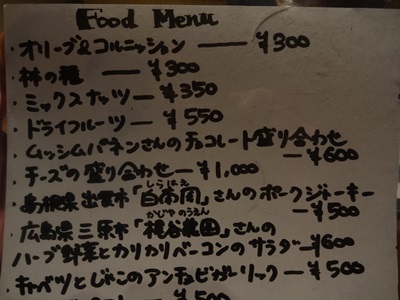 Food Menu
・オリーブ&コルニッション ―― ¥300
・柿の種 ―― ¥300
・ミックスナッツ ― ¥350
・ドライフルーツ ― ¥550
・ムッシムパネンさんのチョコレート盛り合わせ
― ¥600
・チーズの盛り合わせ ― ¥1,000
・島根県出雲市「白市周」さんのポークジャーキー
― ¥500
かじや のうえん
・広島県三原市「梶谷農園」さんの
ハーブ野菜とカリカリベーコンのサラダ ― ¥600
・キャベツとじゃこのアンチョビガーリック ― ¥500
¥500